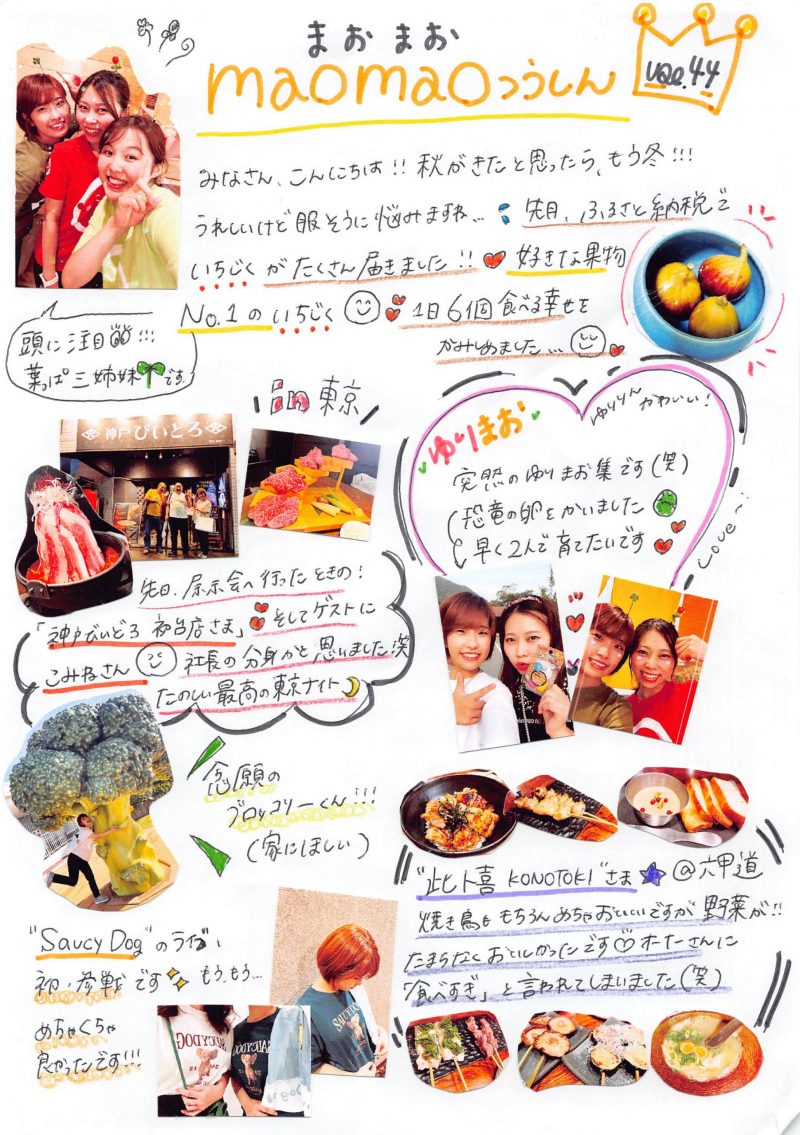 まおまお
maomaoつうしん
vol.44
みなさん、こんにちは!! 秋がきたと思ったら、もう冬!!!
うれしいけど服そうに悩みますね… 先日、ふるさと納税で
いちじくがたくさん届きました!! 好きな果物
No.1のいちじく 1日6個食べる幸せを
かみしめました…
頭に注目!!!
葉っぱ三姉妹です!
in東京
神戸びいどろ
先日、展示会へ行ったときの!
「神戸びいどろ 初台店さま」 そしてゲストに
こみねさん 社長の分身かと思いました笑
たのしい最高の東京ナイト
ゆりまお
ゆりりんかわいい!
突然のゆりまお集です(笑)
恐竜の卵をかいました
早く2人で育てたいです
Love
念願の
ブロッコリーくん!!!
(家にほしい)
"Saucy Dog"のライブ、
初・参戦です もう、もう…
めちゃくちゃ
良かったです!!!
SAUCY DOG
SAUCY DOG
"此ト喜 KONOTOKI"さま @六甲道
焼き鳥ももちろんめちゃおいしいですが野菜が!!
たまらなくおいしかったです♡オーナーさんに
「食べすぎ」と言われてしまいました(笑)